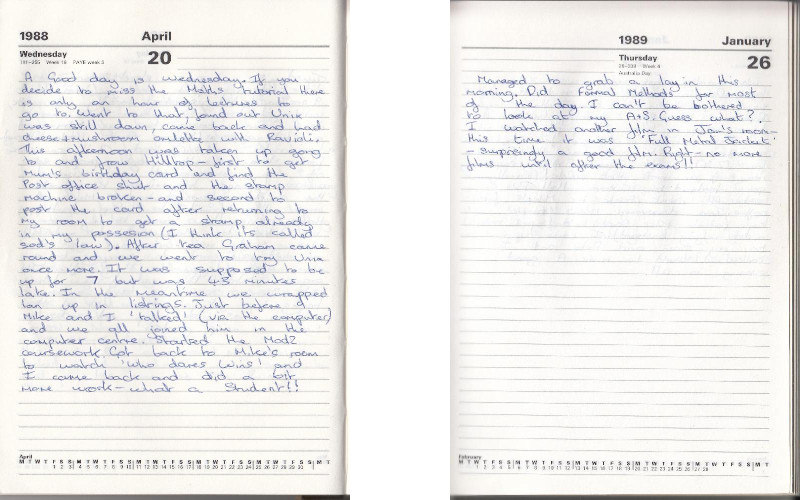 1988 April
Wednesday 20
111-255 Week 16 PAYE week 3
A Good day is wednesday. If you
decide to miss the Maths tutorial there
is only an hour of lectures to
go to. Went to that, found out Unix
was still down, came back and had
cheese+mushroom omlette with Ravioli.
This afternoon was taken up going
to and from Hilltop - first to get
Mum's birthday card and find the
Post office shut and the stamp
machine broken - and second to
post the card after returning to
my room to get a stamp already
in my possesion (I think its called
sod's law). After tea Graham came
round and we went to try Unix
once more. It was supposed to be
up for 7 but was 45 minutes
late. In the meantime we wrapped
Ian up in listings. Just before
Mike and I 'talked' (via the computer)
and we all joined him in the
computer centre. Started the Mod2
coursework. Got back to Mike's room
to watch 'Who dares wins' and
I came back and did a bit
more work - what a Student!!
April
M T W T F S S M T W T F S S M T W T F S S M T W T F S S M T W T F S S M T
1 2 3 4 5 6 7 8 9 10 11 12 13 14 15 16 17 18 19 20 21 22 23 24 25 26 27 28 29 30
1989 January
Thursday 26
26-339 Week 4
Australia Day
Managed to grab a lay in this
morning. Did Formal Methods for most
of the day. I can't be bothered
to look at my A+S. Guess what?.
I watched another film in Jan's room-
this time it was 'Full Metal Jacket'
- surprisingly a good film. Right - no more
films until after the exams!!
February
M T W T F S S M T W T F S S M T W T F S S M T W T F S S M T W T F S S M T
1 2 3 4 5 6 7 8 9 10 11 12 13 14 15 16 17 18 19 20 21 22 23 24 25 26 27 28